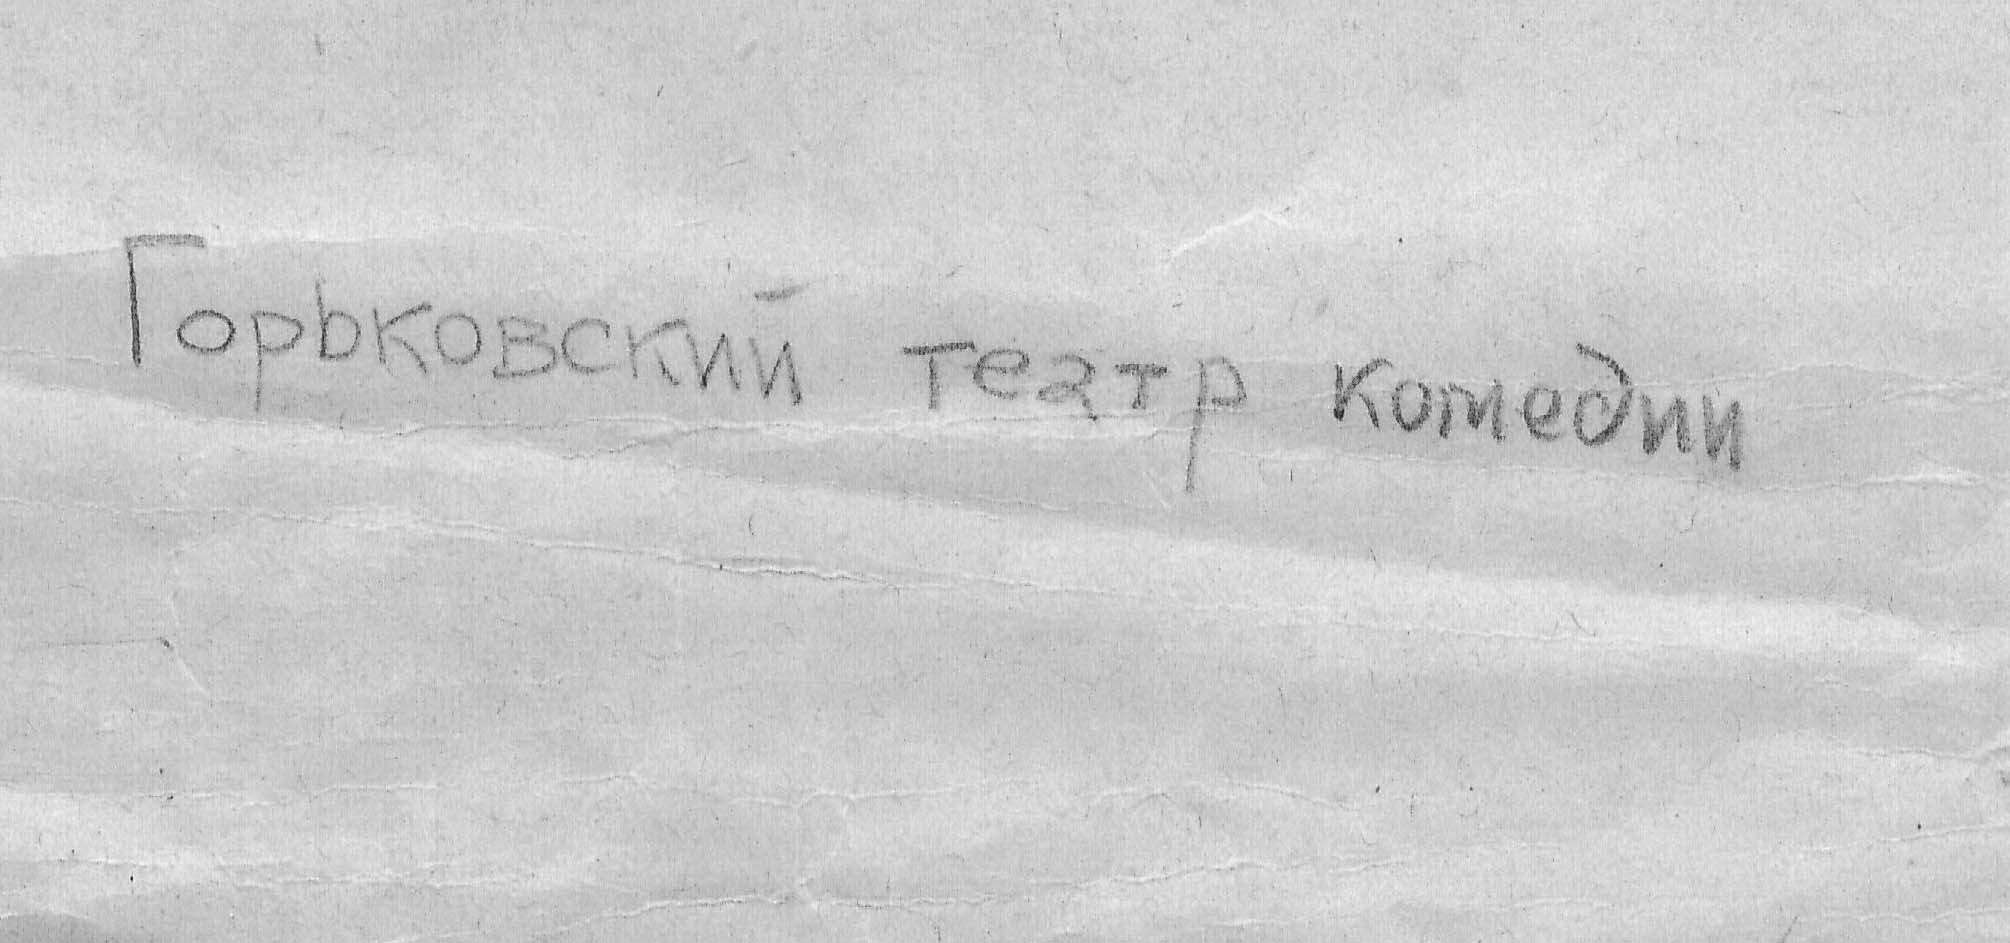 Горьковский театр комедии